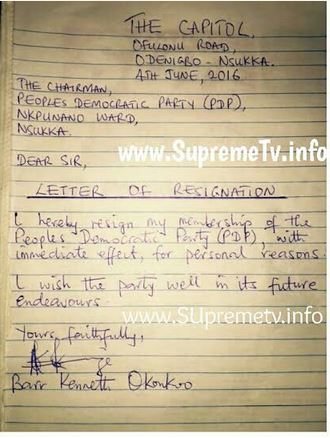 THE CAPITOL,
OFULONU ROAD,
ODENIGBO - NSUKKA.
4TH JUNE, 2016
THE CHAIRMAN,
PEOPLES DEMOCRATIC PARTY (PDP),
NKPUNANO WARD,
NSUKKA.
www.SupremeTv.info
DEAR SIR,
LETTER OF RESIGNATION
I hereby resign my membership of the
Peoples Democratic Party (PDP), with
immediate effect, for personal reasons.
I wish the party well in its future
endeavours.
www.SUpremetv.info
Yours faithfully,
Barr Kenneth Okonkwo